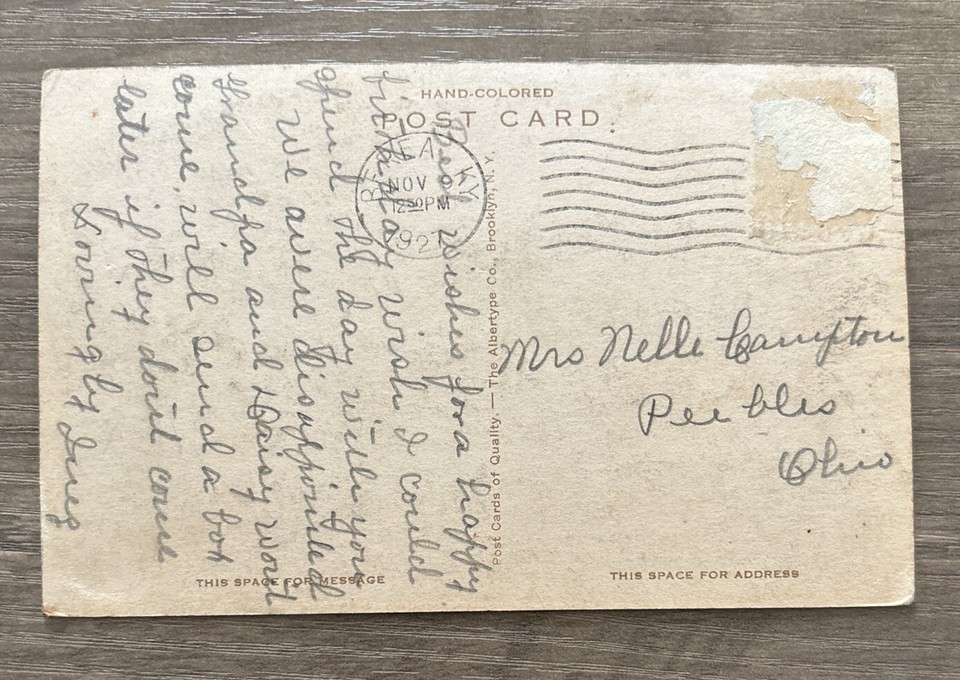 HAND-COLORED
POST CARD.
BEREA KY
NOV
12 30 PM
192
Best wishes for a happy
birthday wish I could
spend the day with you
We were disappointed
Grandpa and Daisy wont
come, will send a box
later if they dont come
Lovingly Inez
Post Cards of Quality. — The Albertype Co., Brooklyn, N. Y.
Mrs Nelle Campton
Peebles
Ohio
THIS SPACE FOR MESSAGE
THIS SPACE FOR ADDRESS